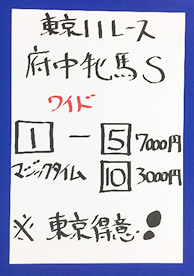 東京11レース
府中牝馬S
ワイド
1 - 5 7000円
マジックタイム 10 3000円
※ 東京得意!